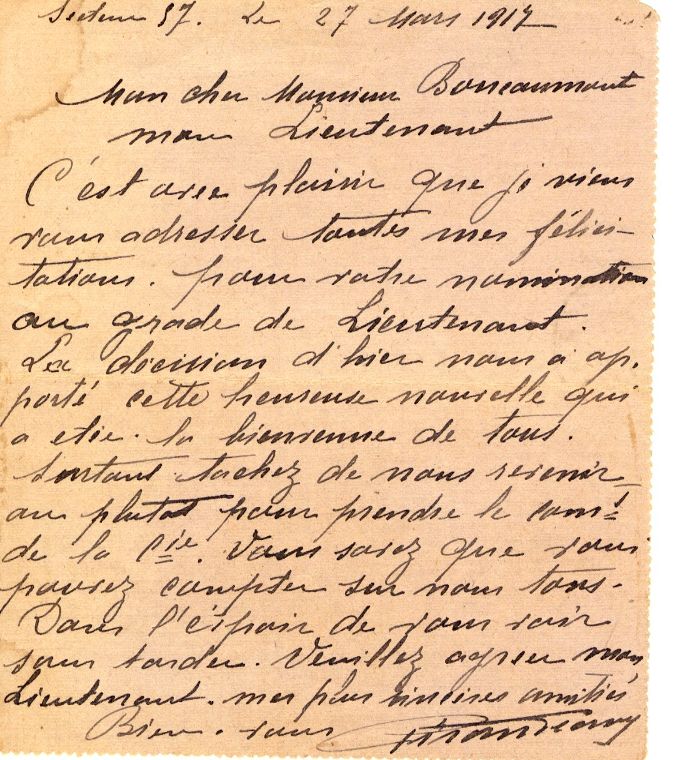 Secteur 57. Le 27 Mars 1917
Mon cher Monsieur
mon Lieutenant
C'est avec plaisir que je viens
vous adresser toutes mes félici-
tations. pour votre nomination
au grade de Lieutenant.
La décision d'hier nous a ap.
porté cette heureuse nouvelle qui
a etée. la bienvenue de tous.
Surtout tachez de nous revenir
au plutot pour prendre le com.t
de la Cie. Vous savez que vous
pouvez compter sur nous tous.
Dans l'espoir de vous voir
sans tarder. Veuillez agreer mon
Lieutenant. mes plus sincères amitiés
Bien. vous